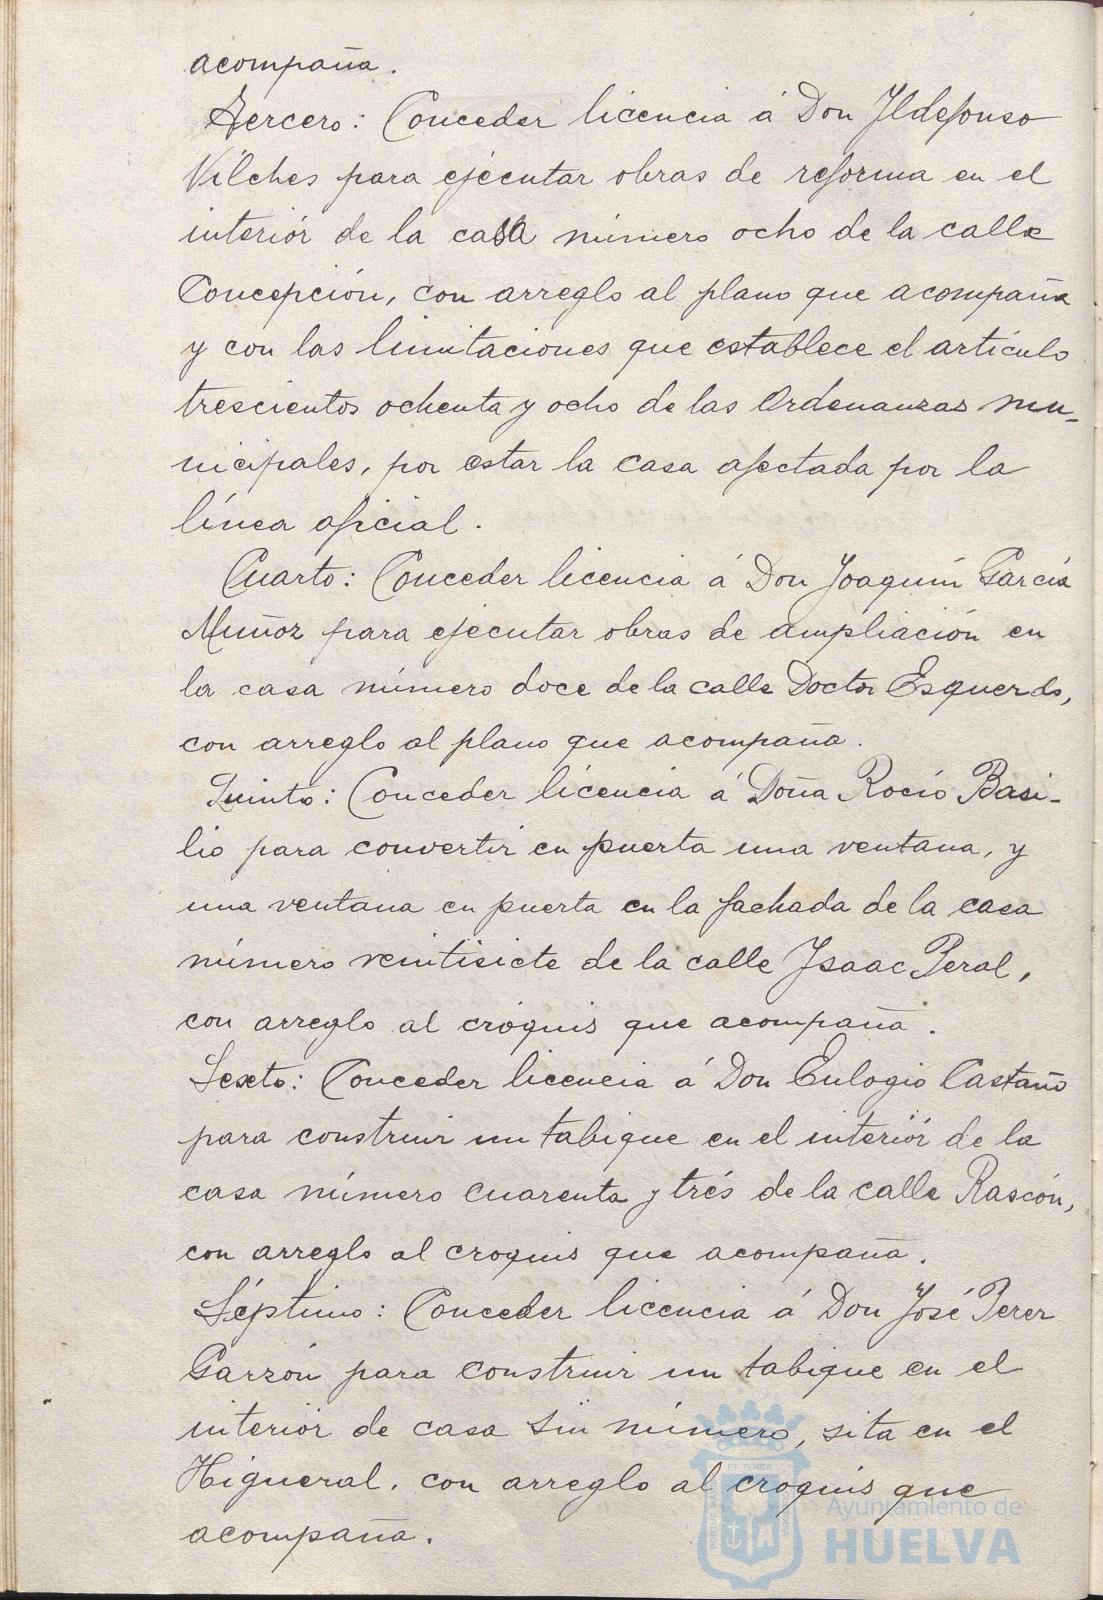 acompaña.
Tercero: Conceder licencia á Don Ildefonso
Vilches para ejecutar obras de reforma en el
interiór de la casa número ocho de la calle
Concepción, con arreglo al plano que acompaña
y con las limitaciones que establece el artículo
trescientos ochenta y ocho de las Ordenanzas mu-
nicipales, por estar la casa afectada por la
línea oficial.
Cuarto: Conceder licencia á Don Joaquín García
Muñoz para ejecutar obras de ampliación en
la casa número doce de la calle Doctor Esquerdo,
con arreglo al plano que acompaña.
Quinto: Conceder licencia á Doña Rocío Basi-
lio para convertir en puerta una ventana, y
una ventana en puerta en la fachada de la casa
número veintisiete de la calle Isaac Peral,
con arreglo al cróquis que acompaña.
Sexto: Conceder licencia á Don Eulogio Castaño
para construir un tabique en el interiór de la
casa número cuarenta y trés de la calle Rascón,
con arreglo al croquis que acompaña.
Séptimo: Conceder licencia á Don José Perez
Garzón para construir un tabique en el
interiór de casa sin número, sita en el
Higueral, con arreglo al croquis que
acompaña.
Ayuntamiento de
HUELVA